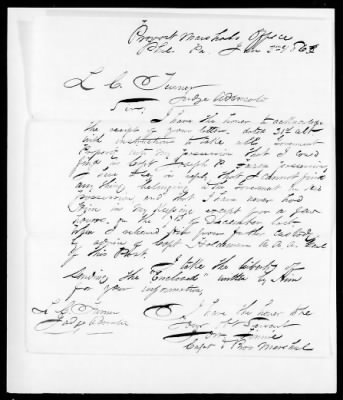 Provost Marshals Office
Phil Pa Jan 2nd 1863
L. C. Turner
Judge Advocate
Sir,
I have the honor to acknowledge
the receipt of your letter, dated 31st ult
with instructions to take all Government
Property in the possession that I could
find in Capt Joseph R.
I have to say in reply, that I cannot find
any thing belonging to the Government in his
possession and that I have never had
him in my charge except for a few
hours on the of December last
when I released him from further custody
by order of Capt A. A. A. Genl
of this Post.
I take the liberty of
sending the "Enclosed" written by him
for your information,
I have the honor to be
L. C. Turner
Your Obt Servant
Judge Advocate
Capt & Pro Marshal